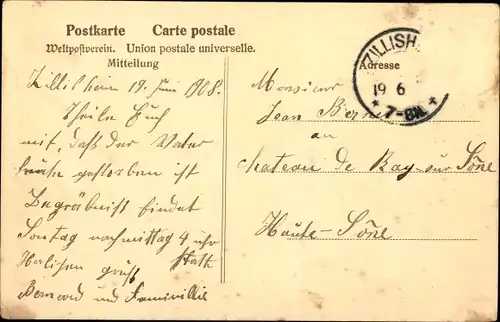 Postkarte Carte postale
Weltpostverein. Union postale universelle.
Mitteilung
Adresse
ZILLISH
19 6
* 7-8N. *
Zillisheim 19 Juni 1908.
Theile Euch
mit, daß der Vater
heute gestorben ist
Begräbnist findet
Sontag nachmittag 4 uhr
statt
Herlichen gruß
Bernard und Famiellie
Monsieur
Jean
au
chateau de Ray sur Sône
Haute-Sône